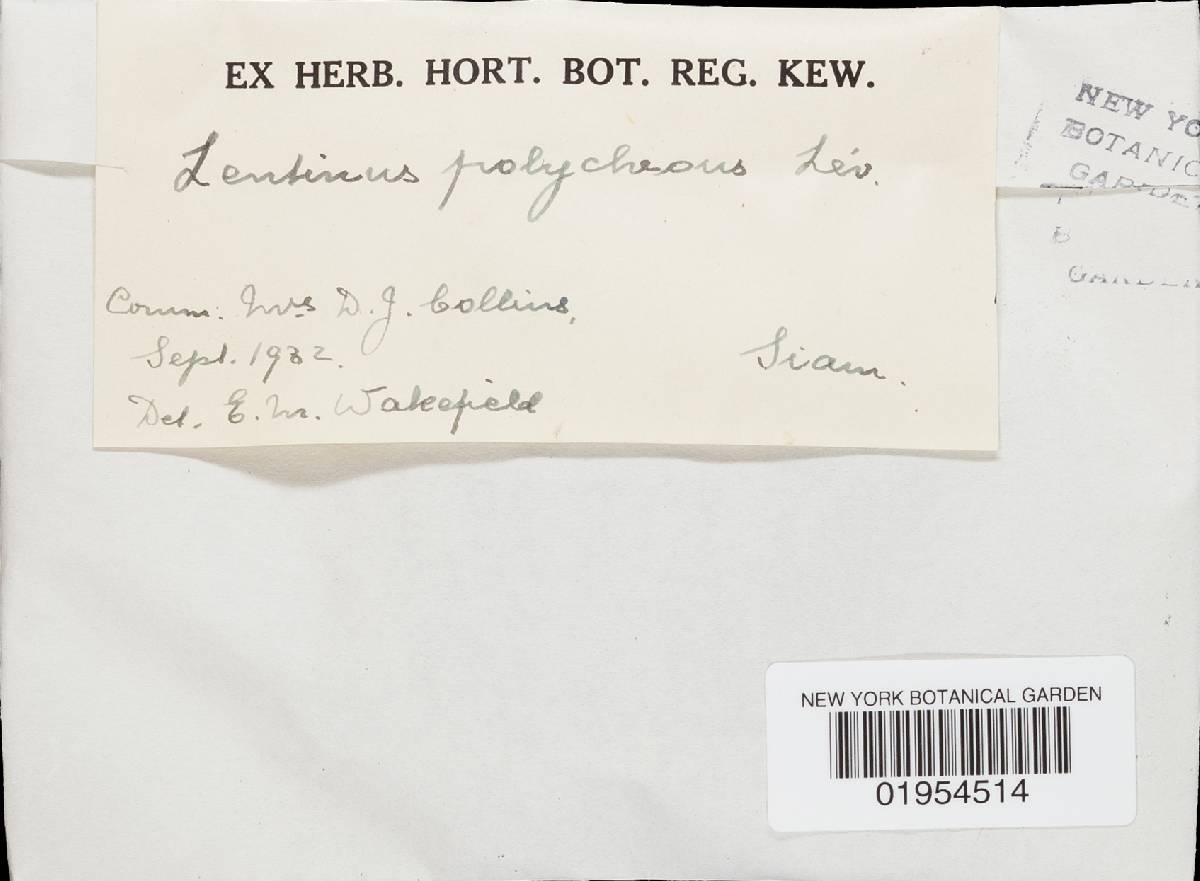 EX HERB. HORT. BOT. REG. KEW.
Lentinus polychrous Lév.
Comm. Mrs D. J. Collins,
Sept. 1932.
Siam.
Det. E. M. Wakefield
NEW YO
BOTANIC
GARDEN
B
GARDEN
NEW YORK BOTANICAL GARDEN
01954514